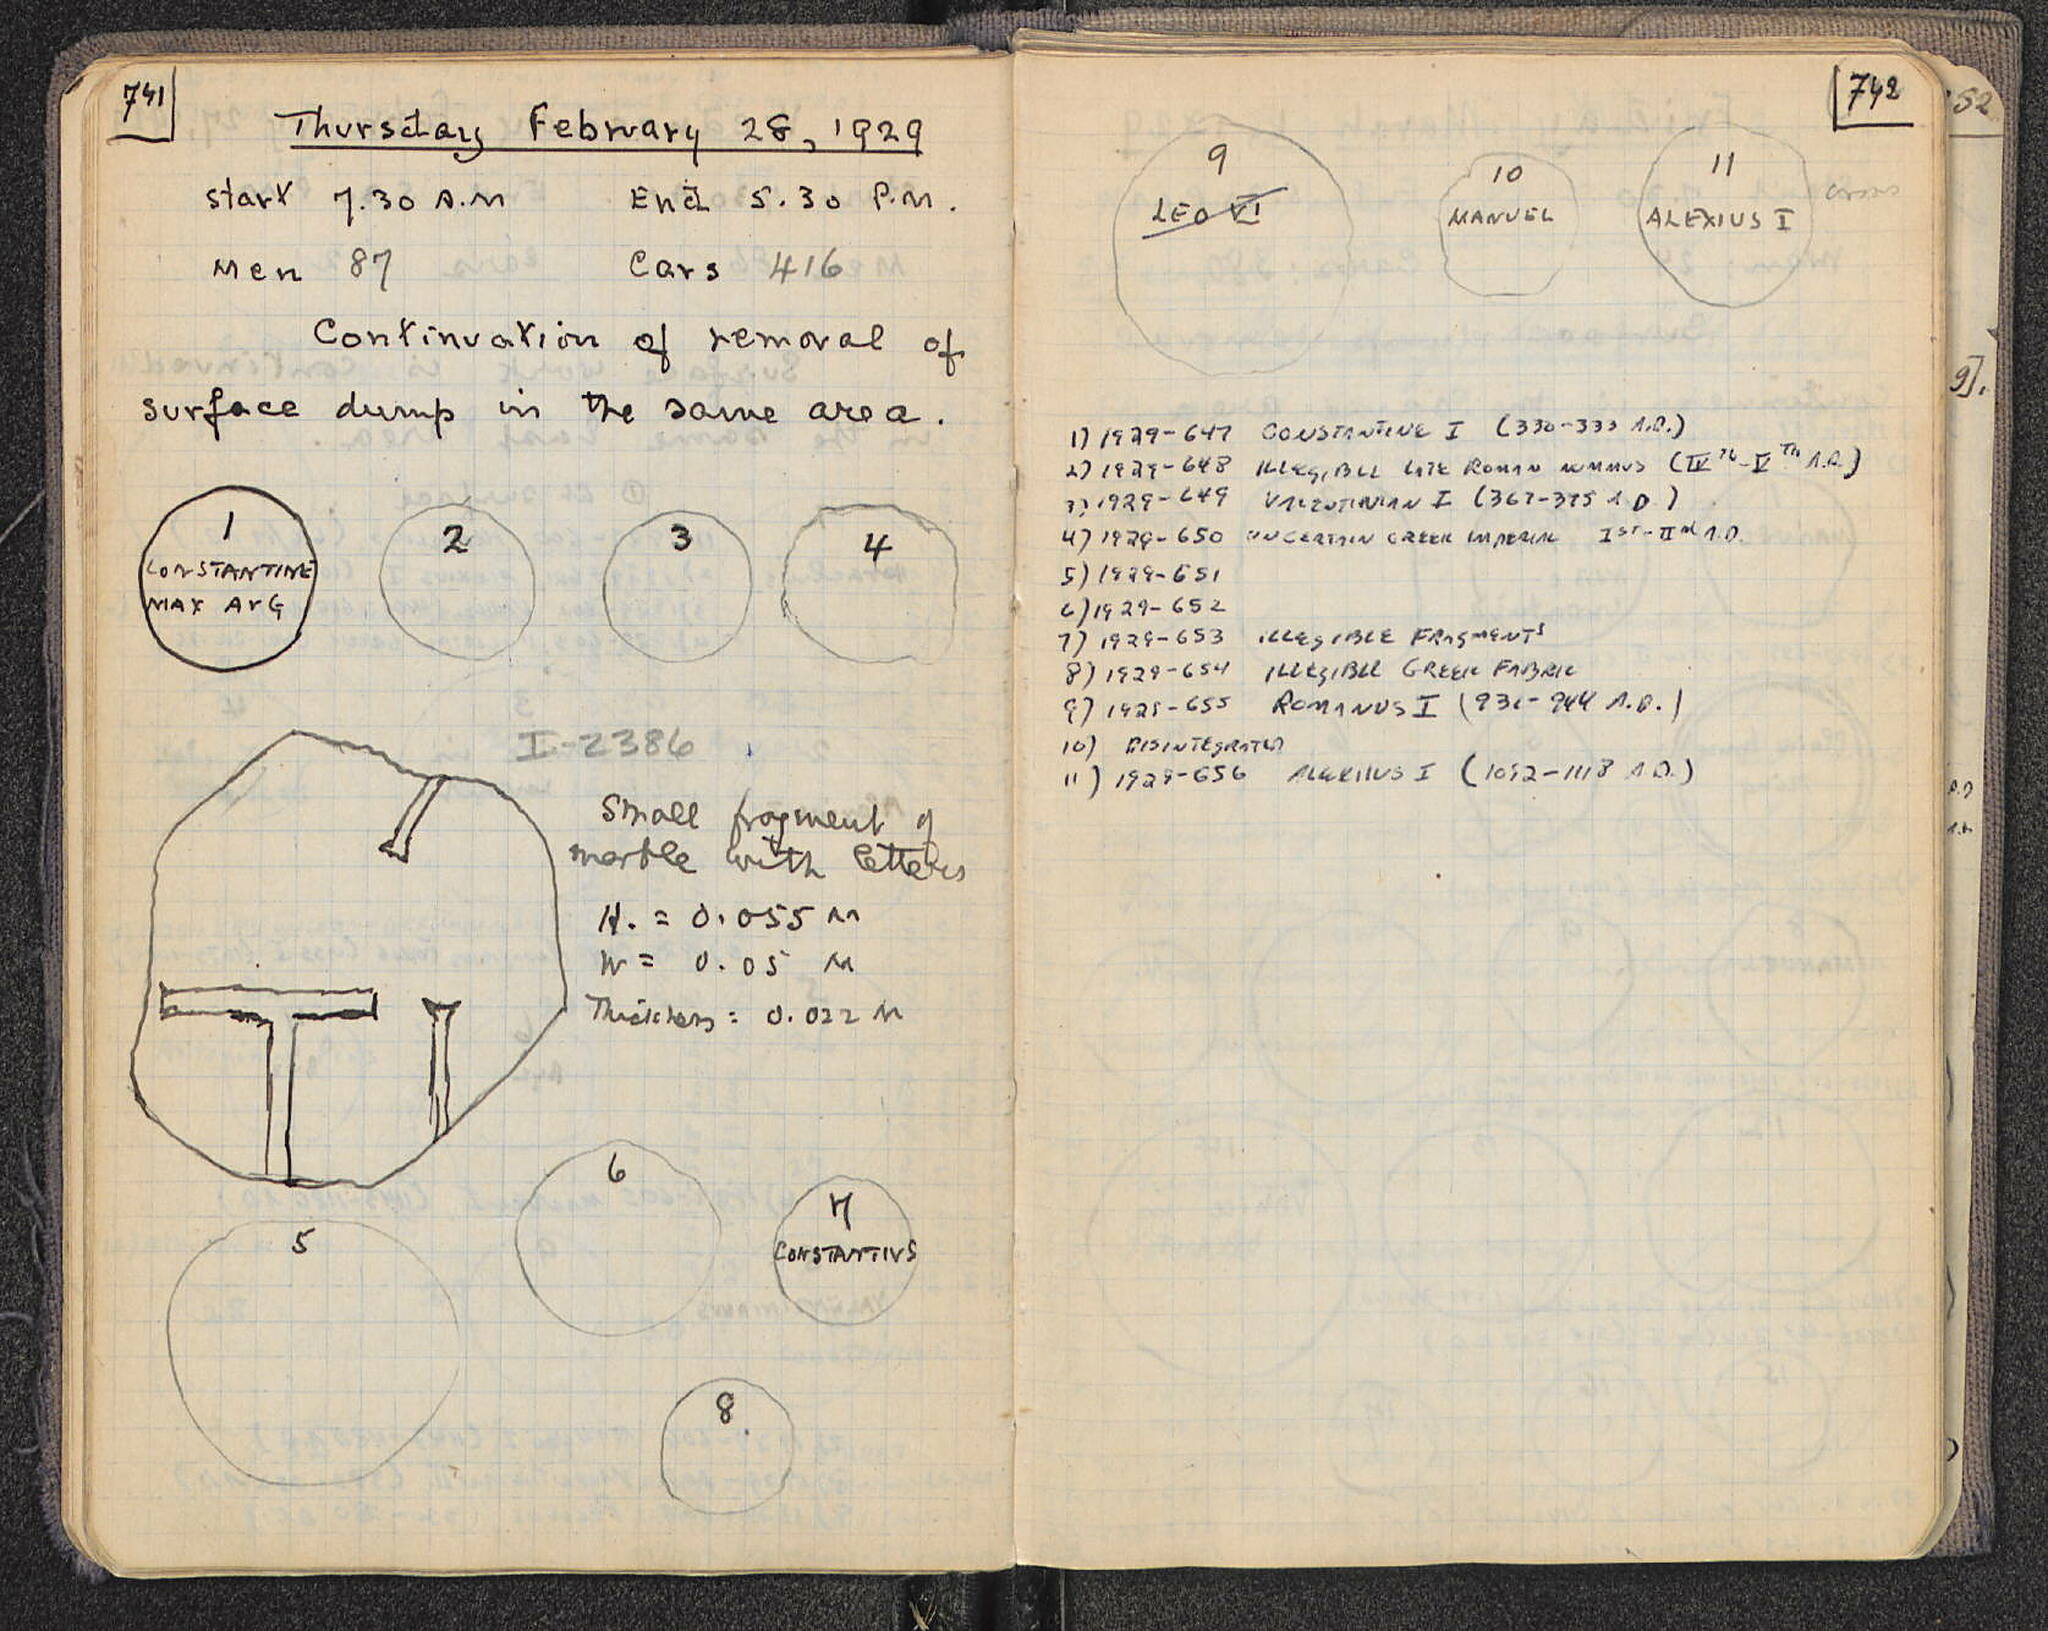 741
Thursday February 28, 1929
Start 7.30 A.M End 5.30 P.M.
Men 87 Cars 416
Continuation of removal of
surface dump in the same area.
1
CONSTANTINE
MAX AVG
2
3
4
I-2386
Small fragment of
marble with letters
H. = 0.055 M
W = 0.05 M
Thickness = 0.022 M
5
6
7
CONSTANTIVS
8
742
9
LEO VI
10
MANUEL
11
ALEXIUS I
cross
1) 1929-647 CONSTANTINE I (330-333 A.D.)
2) 1929-648 ILLEGIBLE LATE ROMAN NUMMUS (IVth-Vth A.D.)
3) 1929-649 VALENTINIAN I (367-375 A.D.)
4) 1929-650 UNCERTAIN GREEK IMPERIAL Ist-IInd A.D.
5) 1929-651
6) 1929-652
7) 1929-653 ILLEGIBLE FRAGMENTS
8) 1929-654 ILLEGIBLE GREEK FABRIC
9) 1929-655 ROMANUS I (931-944 A.D.)
10) DISINTEGRATED
11) 1929-656 ALEXIUS I (1092-1118 A.D.)
52
9].